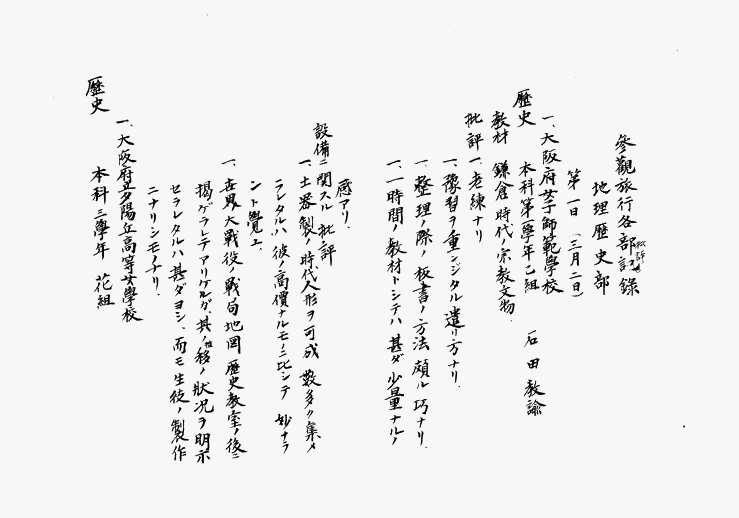 參觀旅行各部批評記錄
地理歷史部
第一日(三月二日)
一、大阪府女子師範學校
歷史　本科第一學年乙組　石田教諭
教材　鎌倉時代ノ宗教文物.
批評 一、老練ナリ
一、豫習ヲ重ンジタル遣リ方ナリ.
一、整理ノ際ノ板書ノ方法頗ル巧ナリ.
一、一時間ノ教材トシテハ甚ダ少量ナルノ
感アリ.
設備ニ関スル批評
一、土器製ノ時代人形ヲ可成數多ク集メ
ラレタルハ彼ノ高價ナルモノニ比シテ妙ナラ
ント覺ユ.
一、世界大戰役ノ戰局地図歷史教室ノ後ニ
揭ゲラレテアリケルガ.其ノ推移ノ狀況ヲ明示
セラレタルハ甚ダヨシ、而モ生徒ノ製作
ニナリシモノナリ.
一、大阪府立夕陽丘高等女學校
歷史　本科三學年　花組